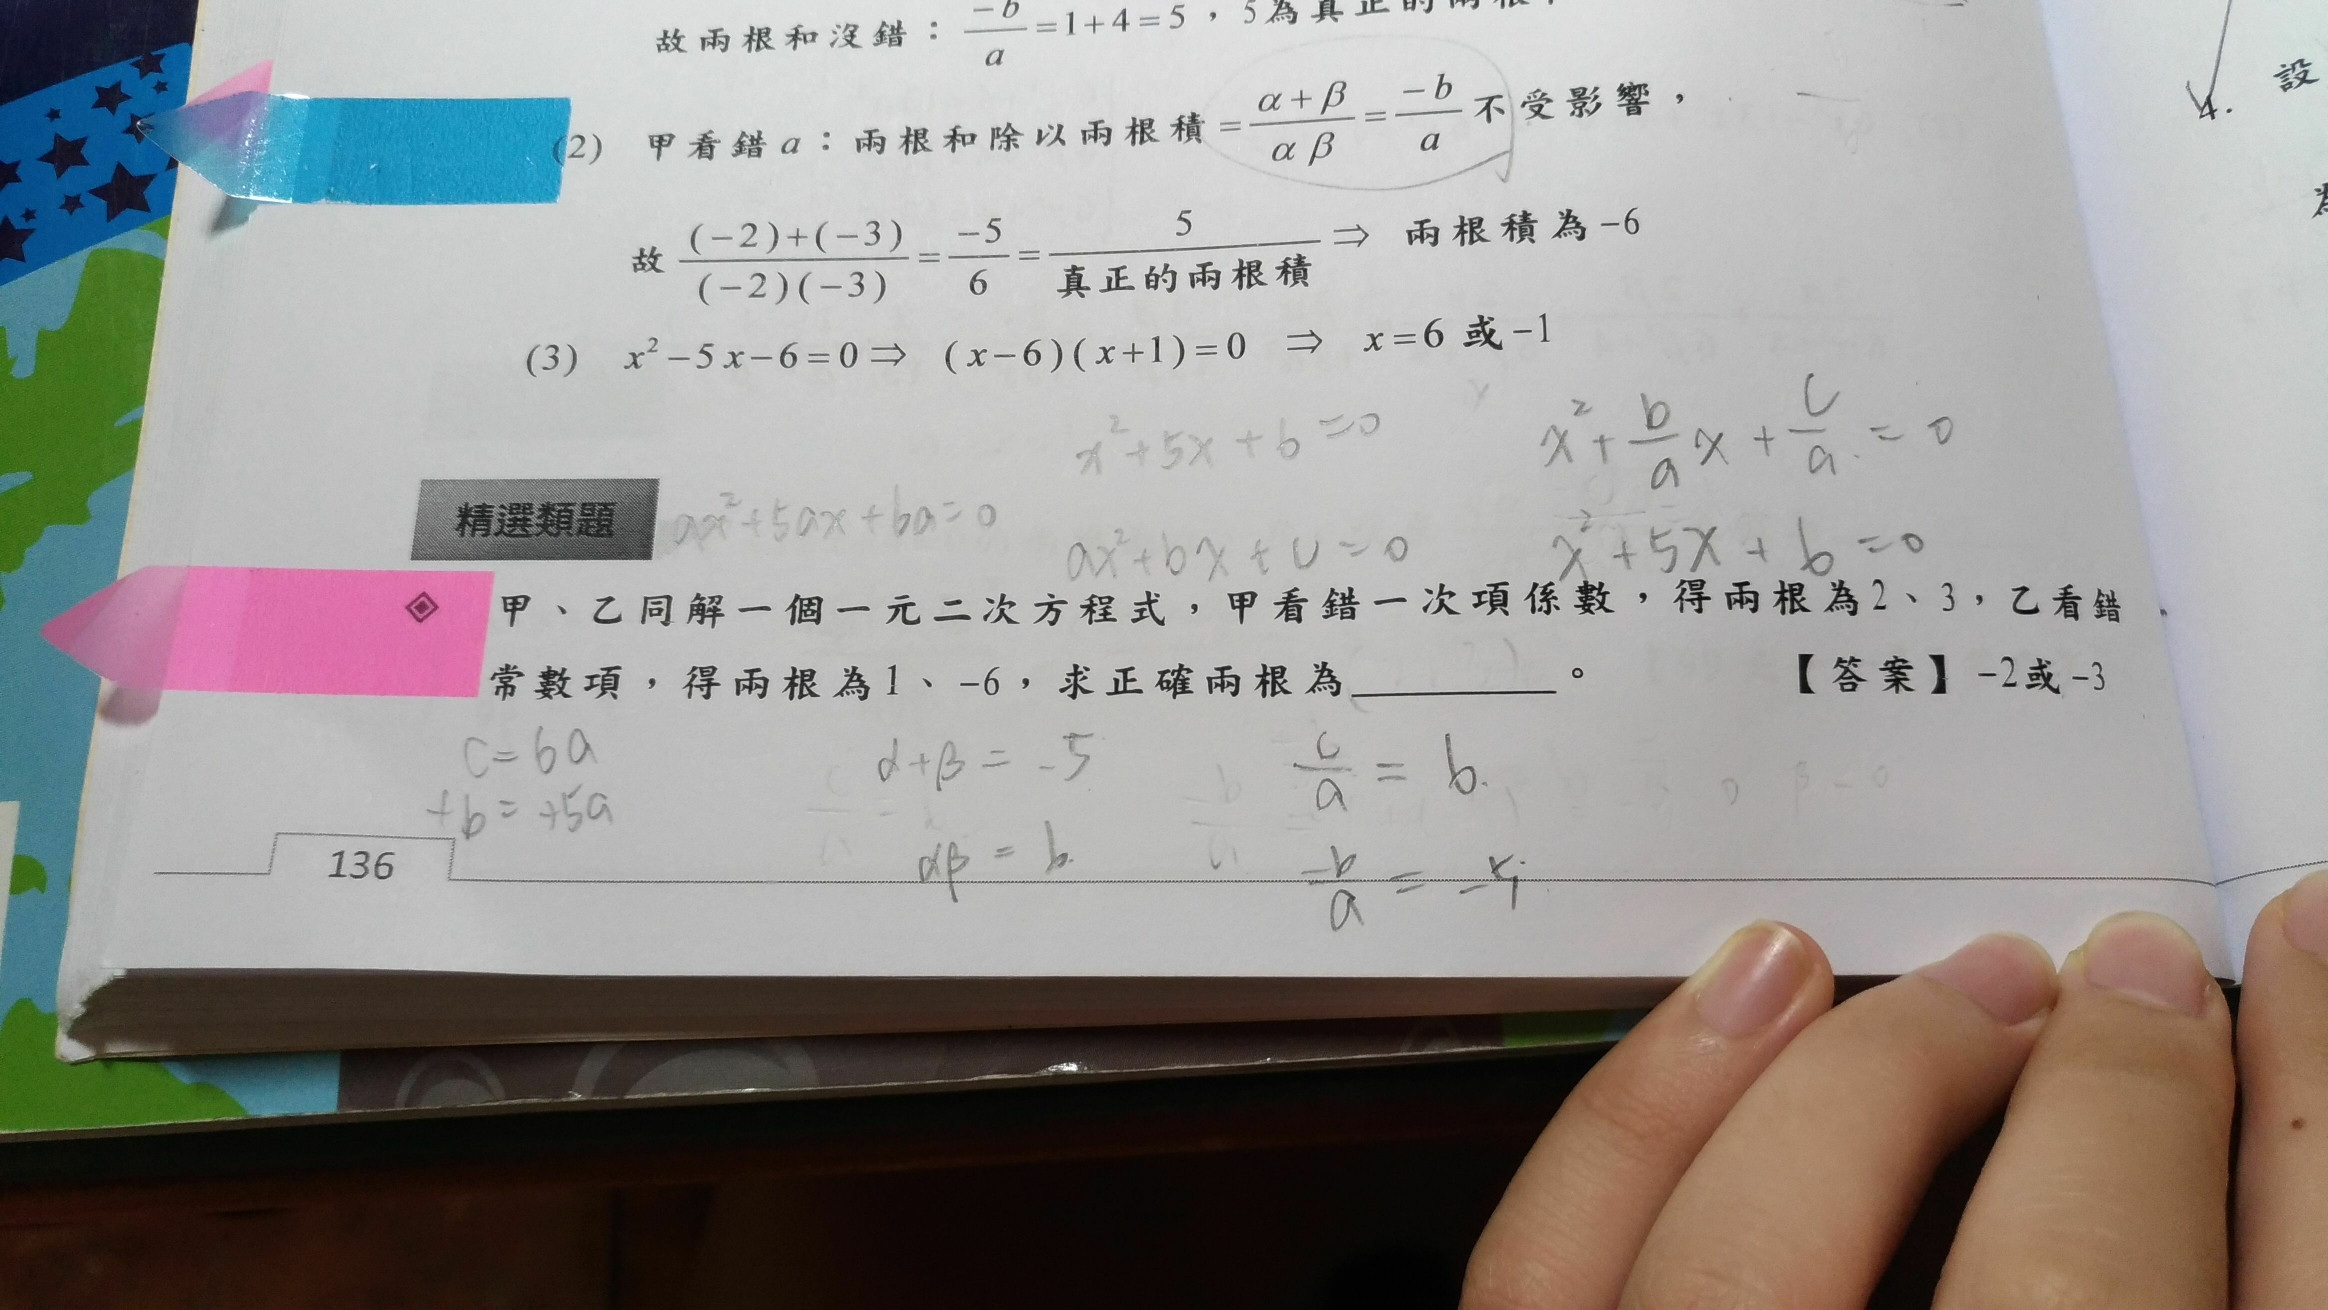 故兩根和沒錯：-b/a=1+4=5，5為真正的兩根
(2) 甲看錯a：兩根和除以兩根積=α+β/αβ=-b/a不受影響，
故 (-2)+(-3)/(-2)(-3)=-5/6=5/真正的兩根積⇒ 兩根積為-6
(3) x²-5x-6=0⇒ (x-6)(x+1)=0 ⇒ x=6或-1
x²+5x+6=0
x²+b/a x+c/a=0
精選類題
ax²+5ax+6a=0
ax²+bx+c=0
x²+5x+6=0
甲、乙同解一個一元二次方程式，甲看錯一次項係數，得兩根為2、3，乙看錯
常數項，得兩根為1、-6，求正確兩根為________。 【答案】-2或-3
c=6a
α+β=-5
c/a=6.
+b=+5a
αβ=6.
-b/a=-5
136
4.
設